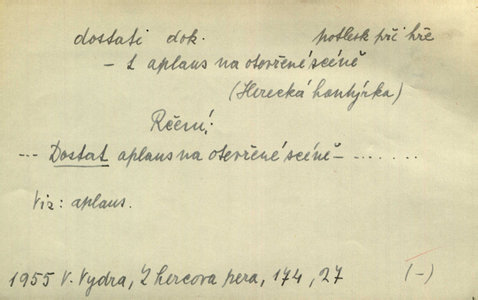 dostati dok. potlesk při hře
- 1 aplaus na otevřené scéně
(Herecká hantýrka)
Rčení:
--- Dostat aplaus na otevřené scéně - . . . . . .
Viz: aplaus.
1955 V. Vydra, Z hercova pera, 174, 27 (-)